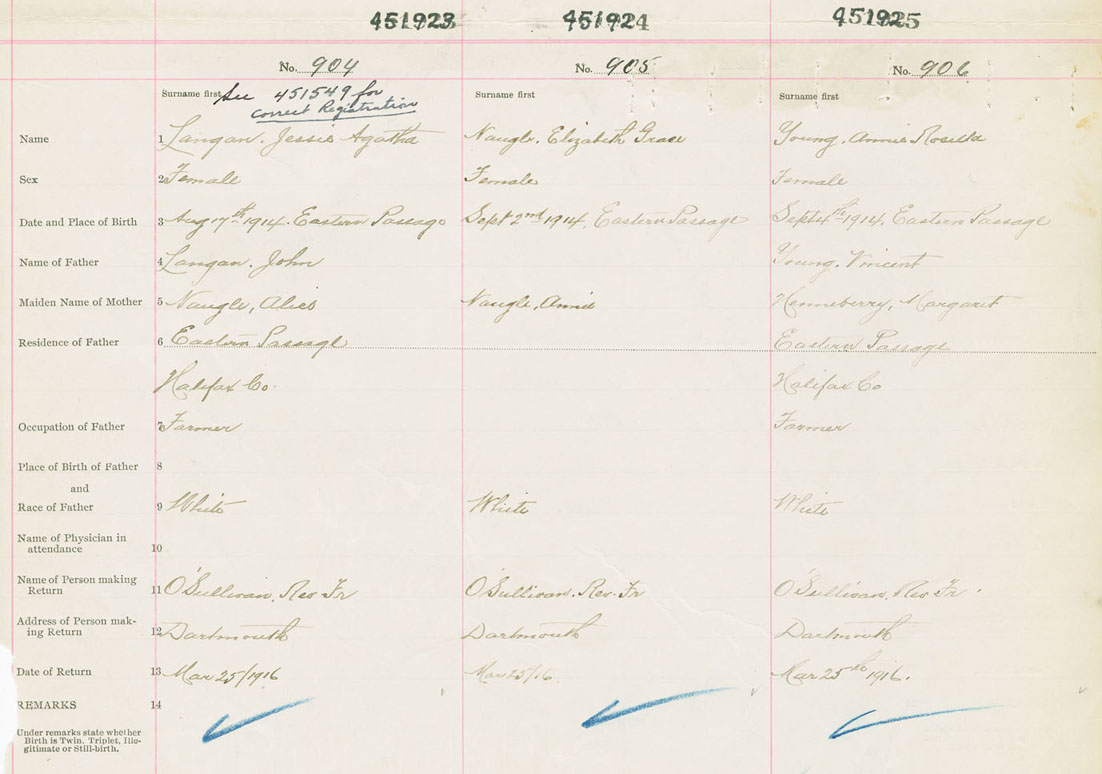 451923 451924 451925
No. 904 No. 905 No. 906
Surname first See 451549 for Surname first Surname first
correct Registration
Name 1 Langan. Jessie Agatha Naugle. Elizabeth Grace Young. Annie Rosella
Sex 2 Female Female Female
Date and Place of Birth 3 Aug 17th 1914. Eastern Passage Sept 2nd 1914, Eastern Passage Sept 4th 1914, Eastern Passage
Name of Father 4 Langan. John Young. Vincent
Maiden Name of Mother 5 Naugle, Alice Naugle, Annie Henneberry, Margaret
Residence of Father 6 Eastern Passage Eastern Passage
Halifax Co. Halifax Co
Occupation of Father 7 Farmer Farmer
Place of Birth of Father 8
and
Race of Father 9 White White White
Name of Physician in
attendance 10
Name of Person making
Return 11 O'Sullivan, Rev Fr O'Sullivan. Rev. Fr O'Sullivan, Rev Fr.
Address of Person mak-
ing Return 12 Dartmouth Dartmouth Dartmouth
Date of Return 13 Mar 25/1916 Mar 25/16. Mar 25th 1916.
REMARKS 14
Under remarks state whether
Birth is Twin. Triplet, Ille-
gitimate or Still-birth.